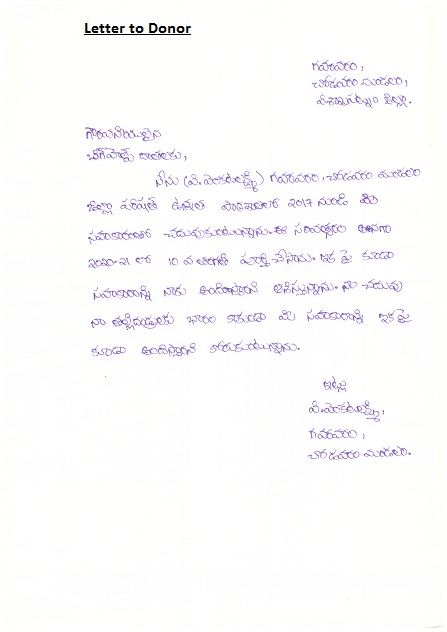 Letter to Donor
గవరవరం,
చోడవరం మండలం,
విశాఖపట్నం జిల్లా.
గౌరవనీయులైన
దాతలకు,
నేను (వి.వెంకటలక్ష్మి) గవరవరం, చోడవరం మండలం
జిల్లా పరిషత్ ఉన్నత పాఠశాలలో 2017 నుండి మీ
సహకారంతో చదువుకుంటున్నాను. ఈ సంవత్సరం అనగా
2020-21 లో 10 వ తరగతి పూర్తి చేసాను. ఇక పై కూడా
సహకారాన్ని నాకు అందిస్తారని ఆశిస్తున్నాను. నా చదువు
నా తల్లిదండ్రులకు భారం కాకుండా మీ సహకారాన్ని ఇక పై
కూడా అందిస్తారని కోరుకుంటున్నాను.
ఇట్లు
వి.వెంకటలక్ష్మి,
గవరవరం,
చోడవరం మండలం.